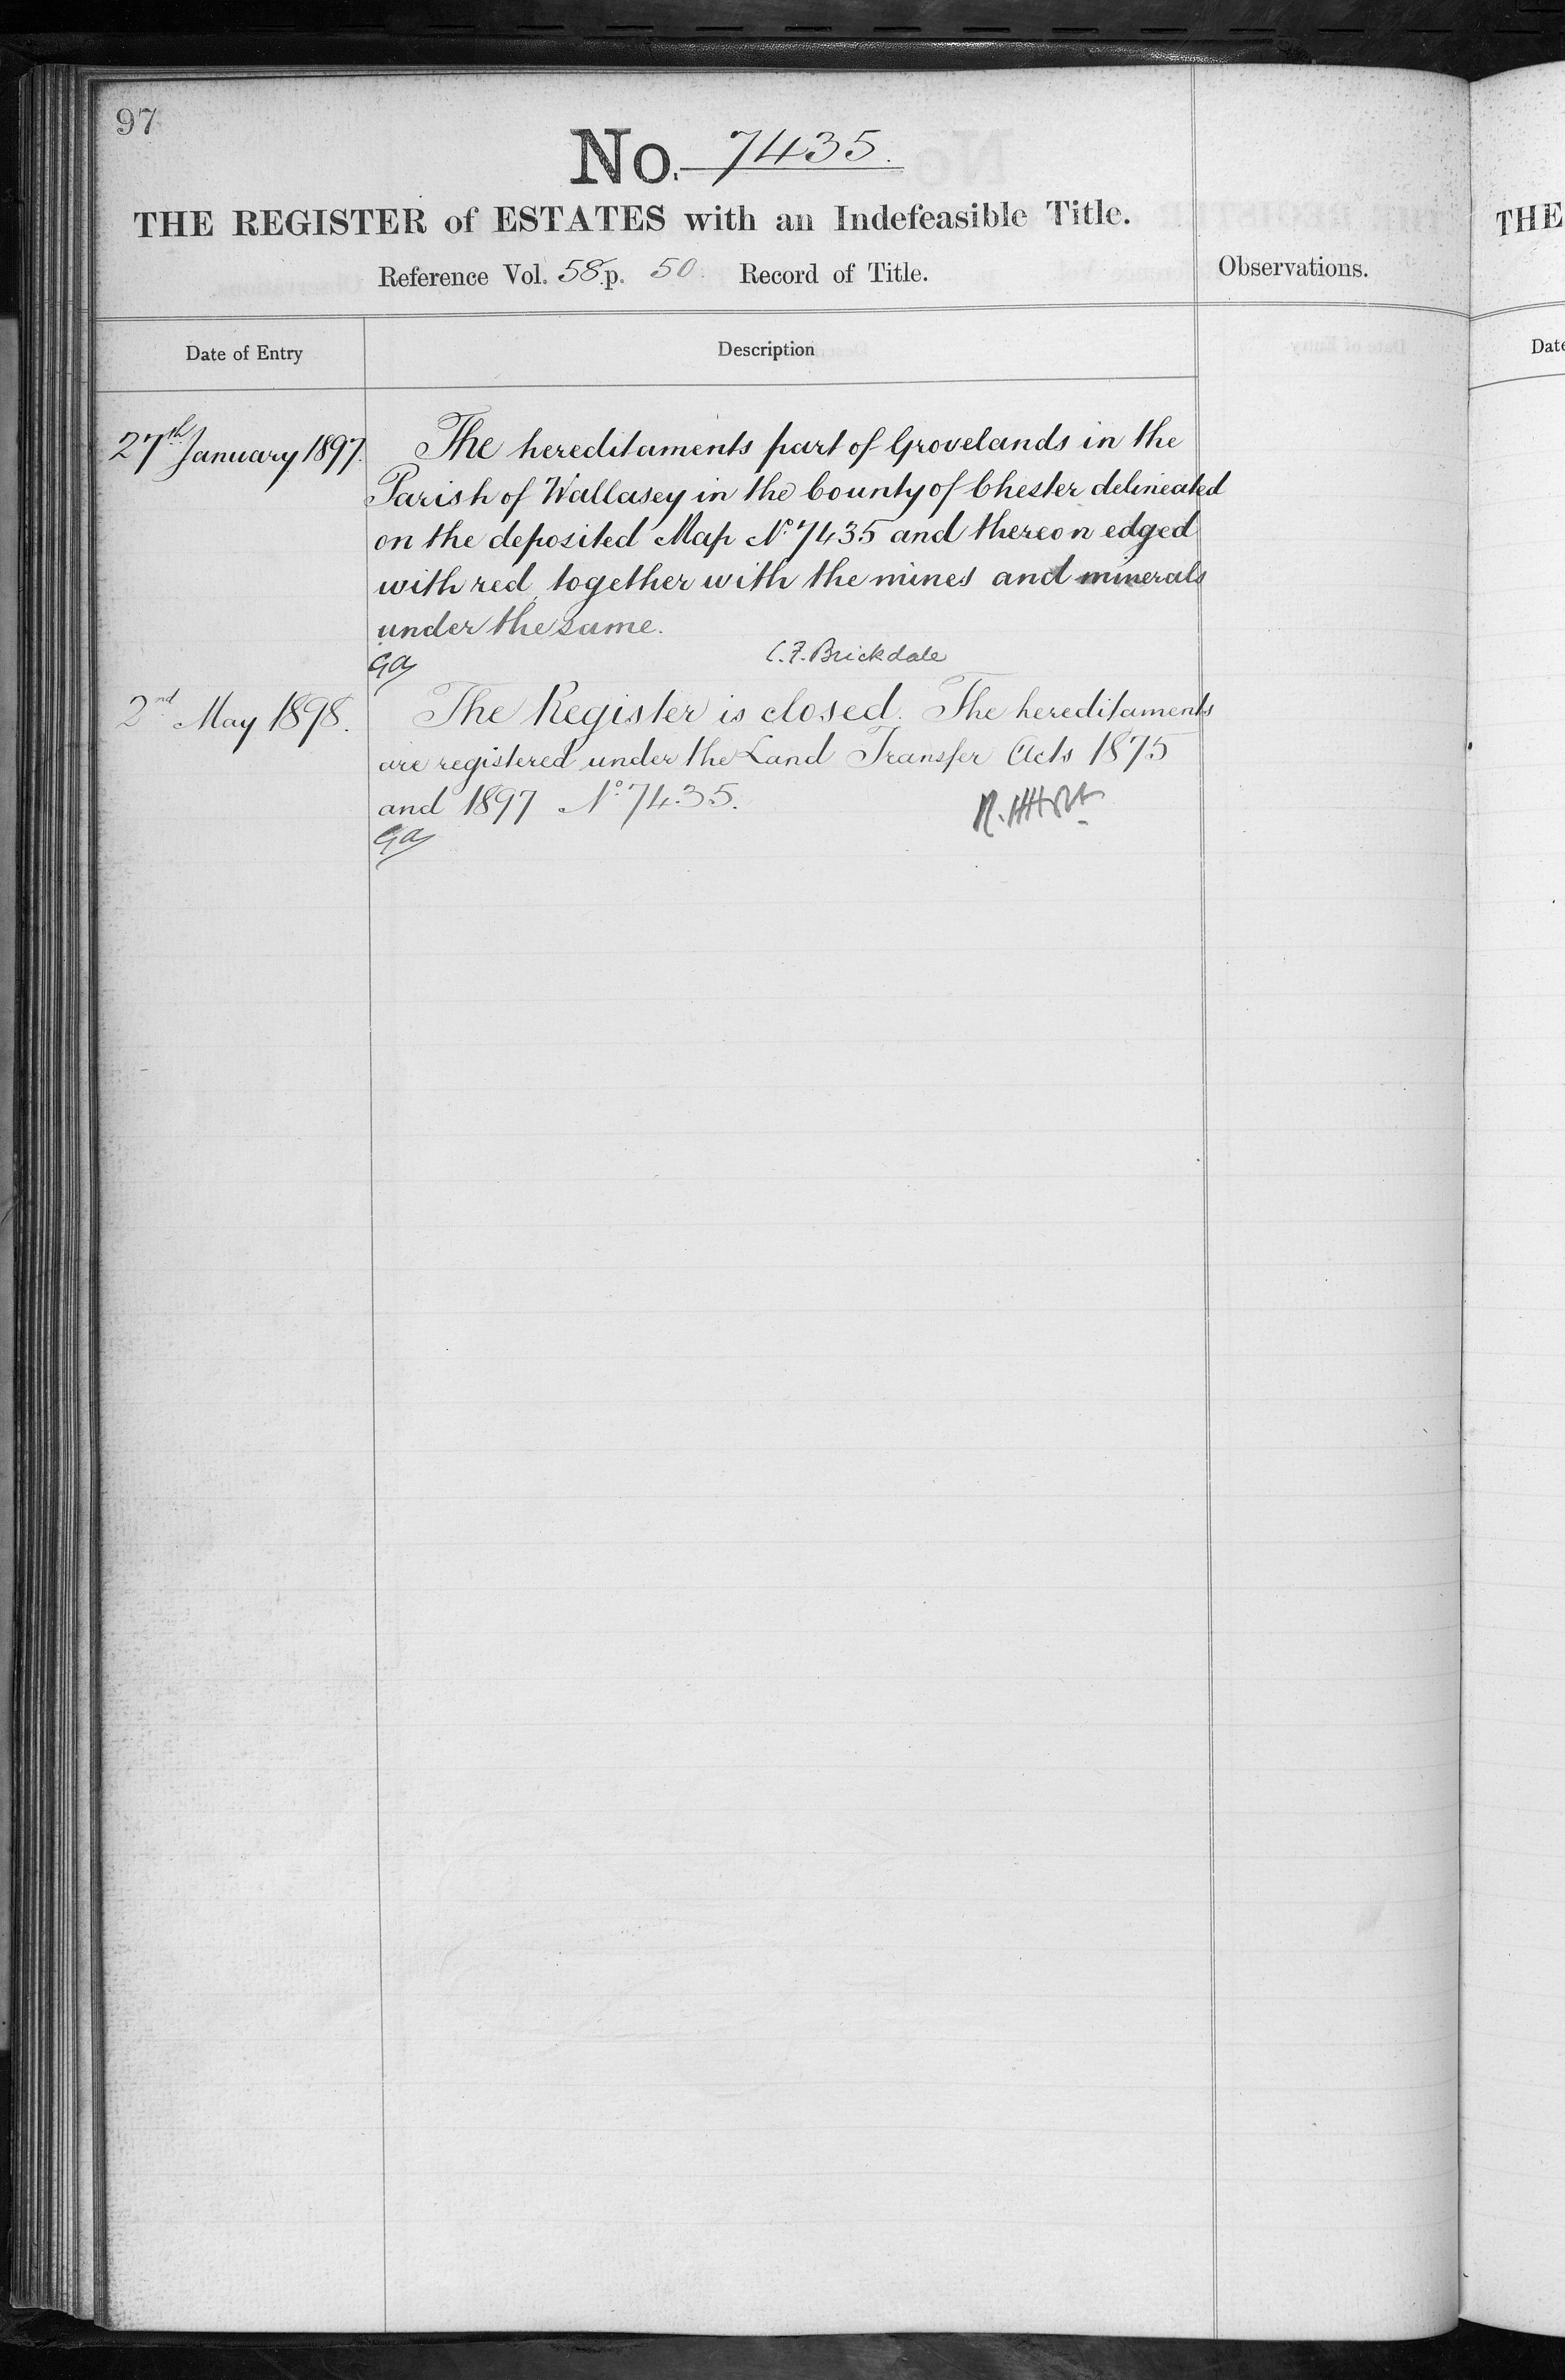 97
No. 7435.
THE REGISTER of ESTATES with an Indefeasible Title.
Reference Vol. 58 p. 50. Record of Title.
Observations.
Date of Entry
Description
27th January 1897.
The hereditaments part of Grovelands in the
Parish of Wallasey in the County of Chester delineated
on the deposited Map No. 7435 and thereon edged
with red, together with the mines and minerals
under the same.
C. F. Brickdale
2nd May 1898.
The Register is closed. The hereditaments
are registered under the Land Transfer Acts 1875
and 1897 No. 7435.
THE
Date